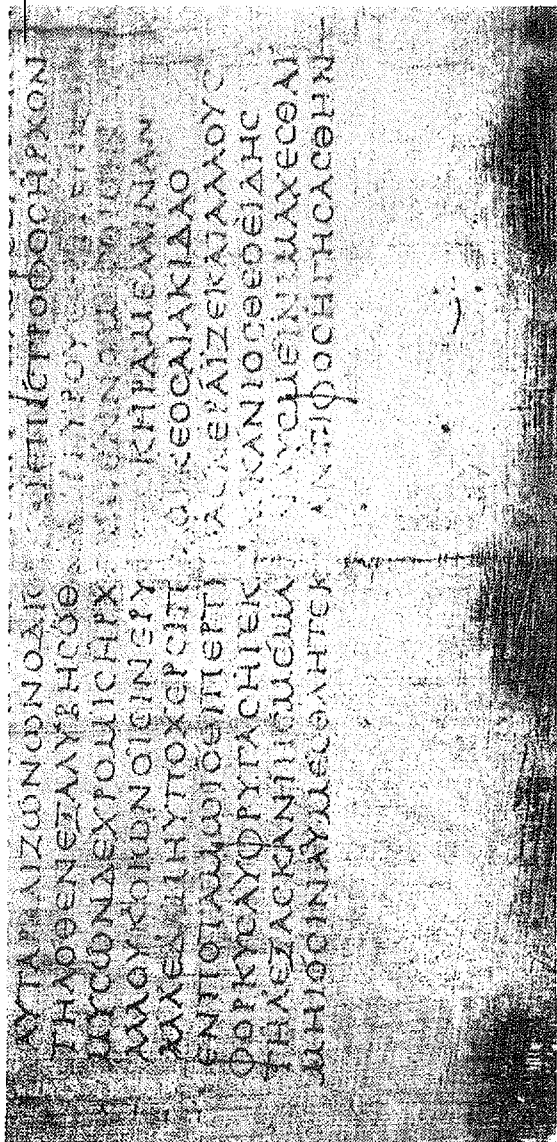 ΑΥΤΑΡΑΛΙΖΩΝΩΝΟΔΙ ΕΠΙCΤΡΟΦΟCΗΡΧΟΝ
ΤΗΛΟΘΕΝΕΞΑΛΥΒΗCΟΘ ΓΥΡΟΥ
ΜΥCΩΝΔΕΧΡΟΜΙCΗΡΧ ΕΝΝΟΜ
ΑΛΛΟΥΚΟΙΩΝΟΙCΙΝΕΡΥ ΚΗΡΑΜΕΛΑΙΝΑΝ
ΑΛΛΕΔΑΜΗΥΠΟΧΕΡCΙΠ ΚΕΟCΑΙΑΚΙΔΑΟ
ΕΝΠΟΤΑΜΩΙΟΘΙΠΕΡΤ ΑCΚΕΡΑΪΖΕΚΑΙΑΛΛΟΥC
ΦΟΡΚΥCΑΥΦΡΥΓΑCΗΓΕΚ CΚΑΝΙΟCΘΕΟΕΙΔΗC
ΤΗΛΕΞΑCΚΑΝΙΗCΜΕΜΑ ΥCΜΕΙΝΙΜΑΧΕCΘΑΙ
ΜΗΙΟCΙΝΑΥΜΕCΘΛΗΤΕΚ ΙΦΟCΗΓΗCΑCΘΗΝ